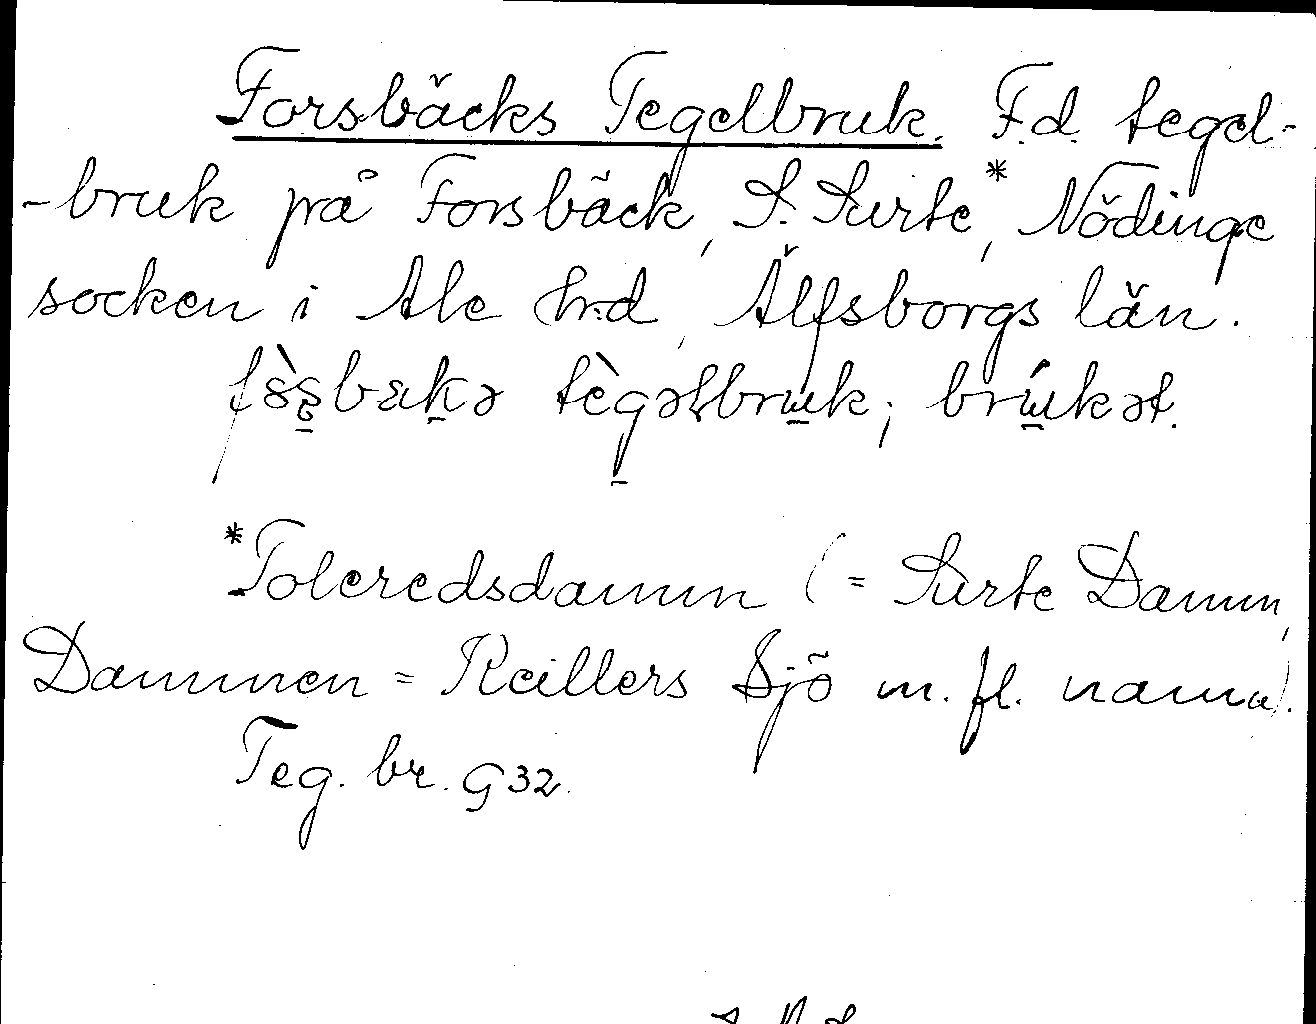 Forsbäcks Tegelbruk. F.d. tegel-
-bruk på Forsbäck, S. Surte,* Nödinge
socken i Ale hrd, Älfsborgs län.
tègəlbruk; brúkət.
*Toleredsdamm (= Surte Damm,
Dammen = Keillers Sjö m. fl. namn).
Teg. br. G 32.